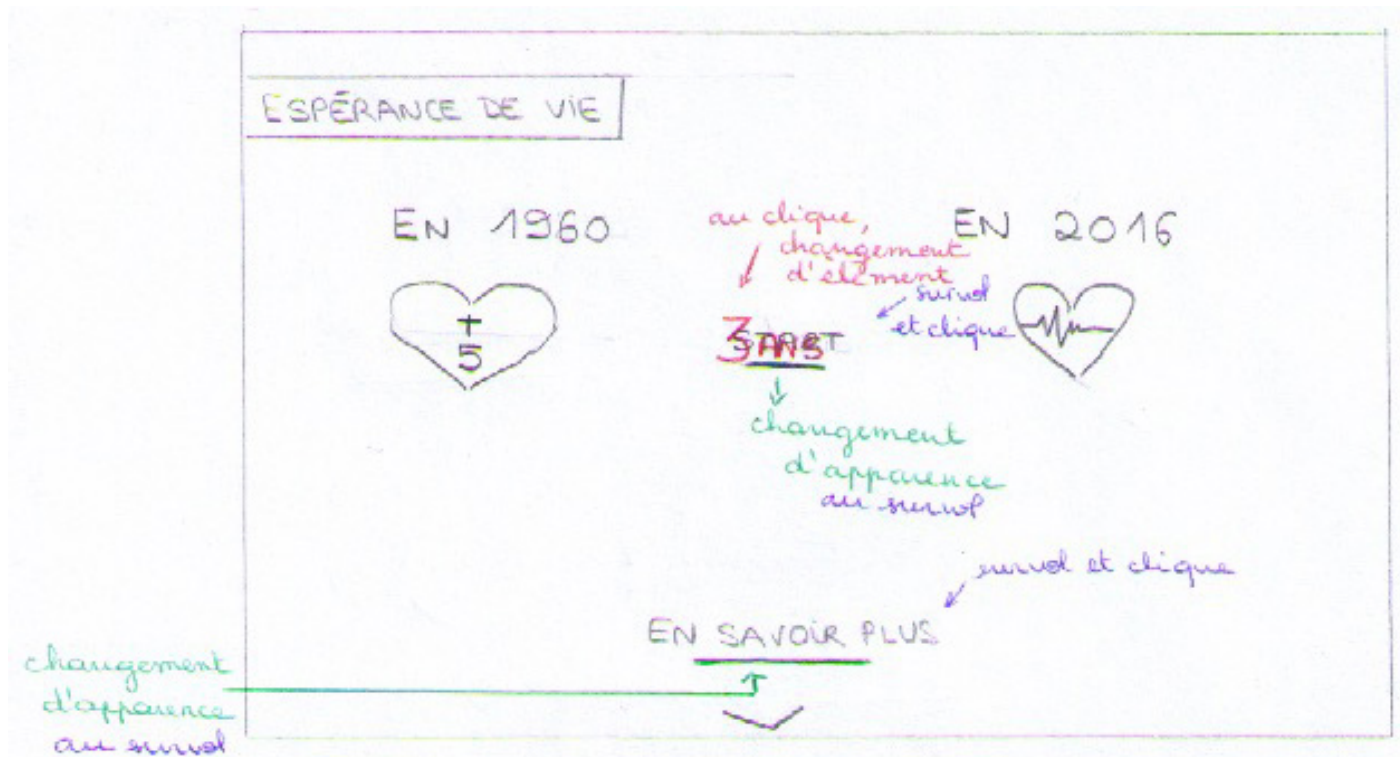 ESPÉRANCE DE VIE
EN 1960
au clique,
changement
d'élément
EN 2016
survol
et clique
+
5
START
3 ANS
changement
d'apparence
au survol
survol et clique
EN SAVOIR PLUS
changement
d'apparence
au survol